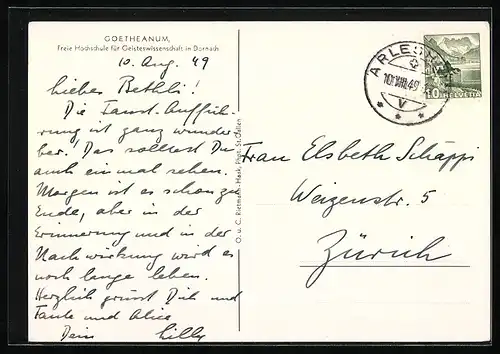 GOETHEANUM,
Freie Hochschule für Geisteswissenschaft in Dornach
10. Aug. 49
Liebes Bethli!
Die Faust-Auffüh-
rung ist ganz wunder-
bar! Das solltest Du
auch ein mal sehen.
Morgen ist es schon zu
Ende, aber in der
Erinnerung und in der
Nachwirkung wird es
noch lange leben.
Herzlich grüsst Dich und
Tante und Alice
Dein Lilly
O. u. C. Rietmann-Haak, Phot. St. Gallen
ARLESHEIM
10.VIII.49
V
10 HELVETIA
Frau Elsbeth Schäppi
Weizenstr. 5
Zürich